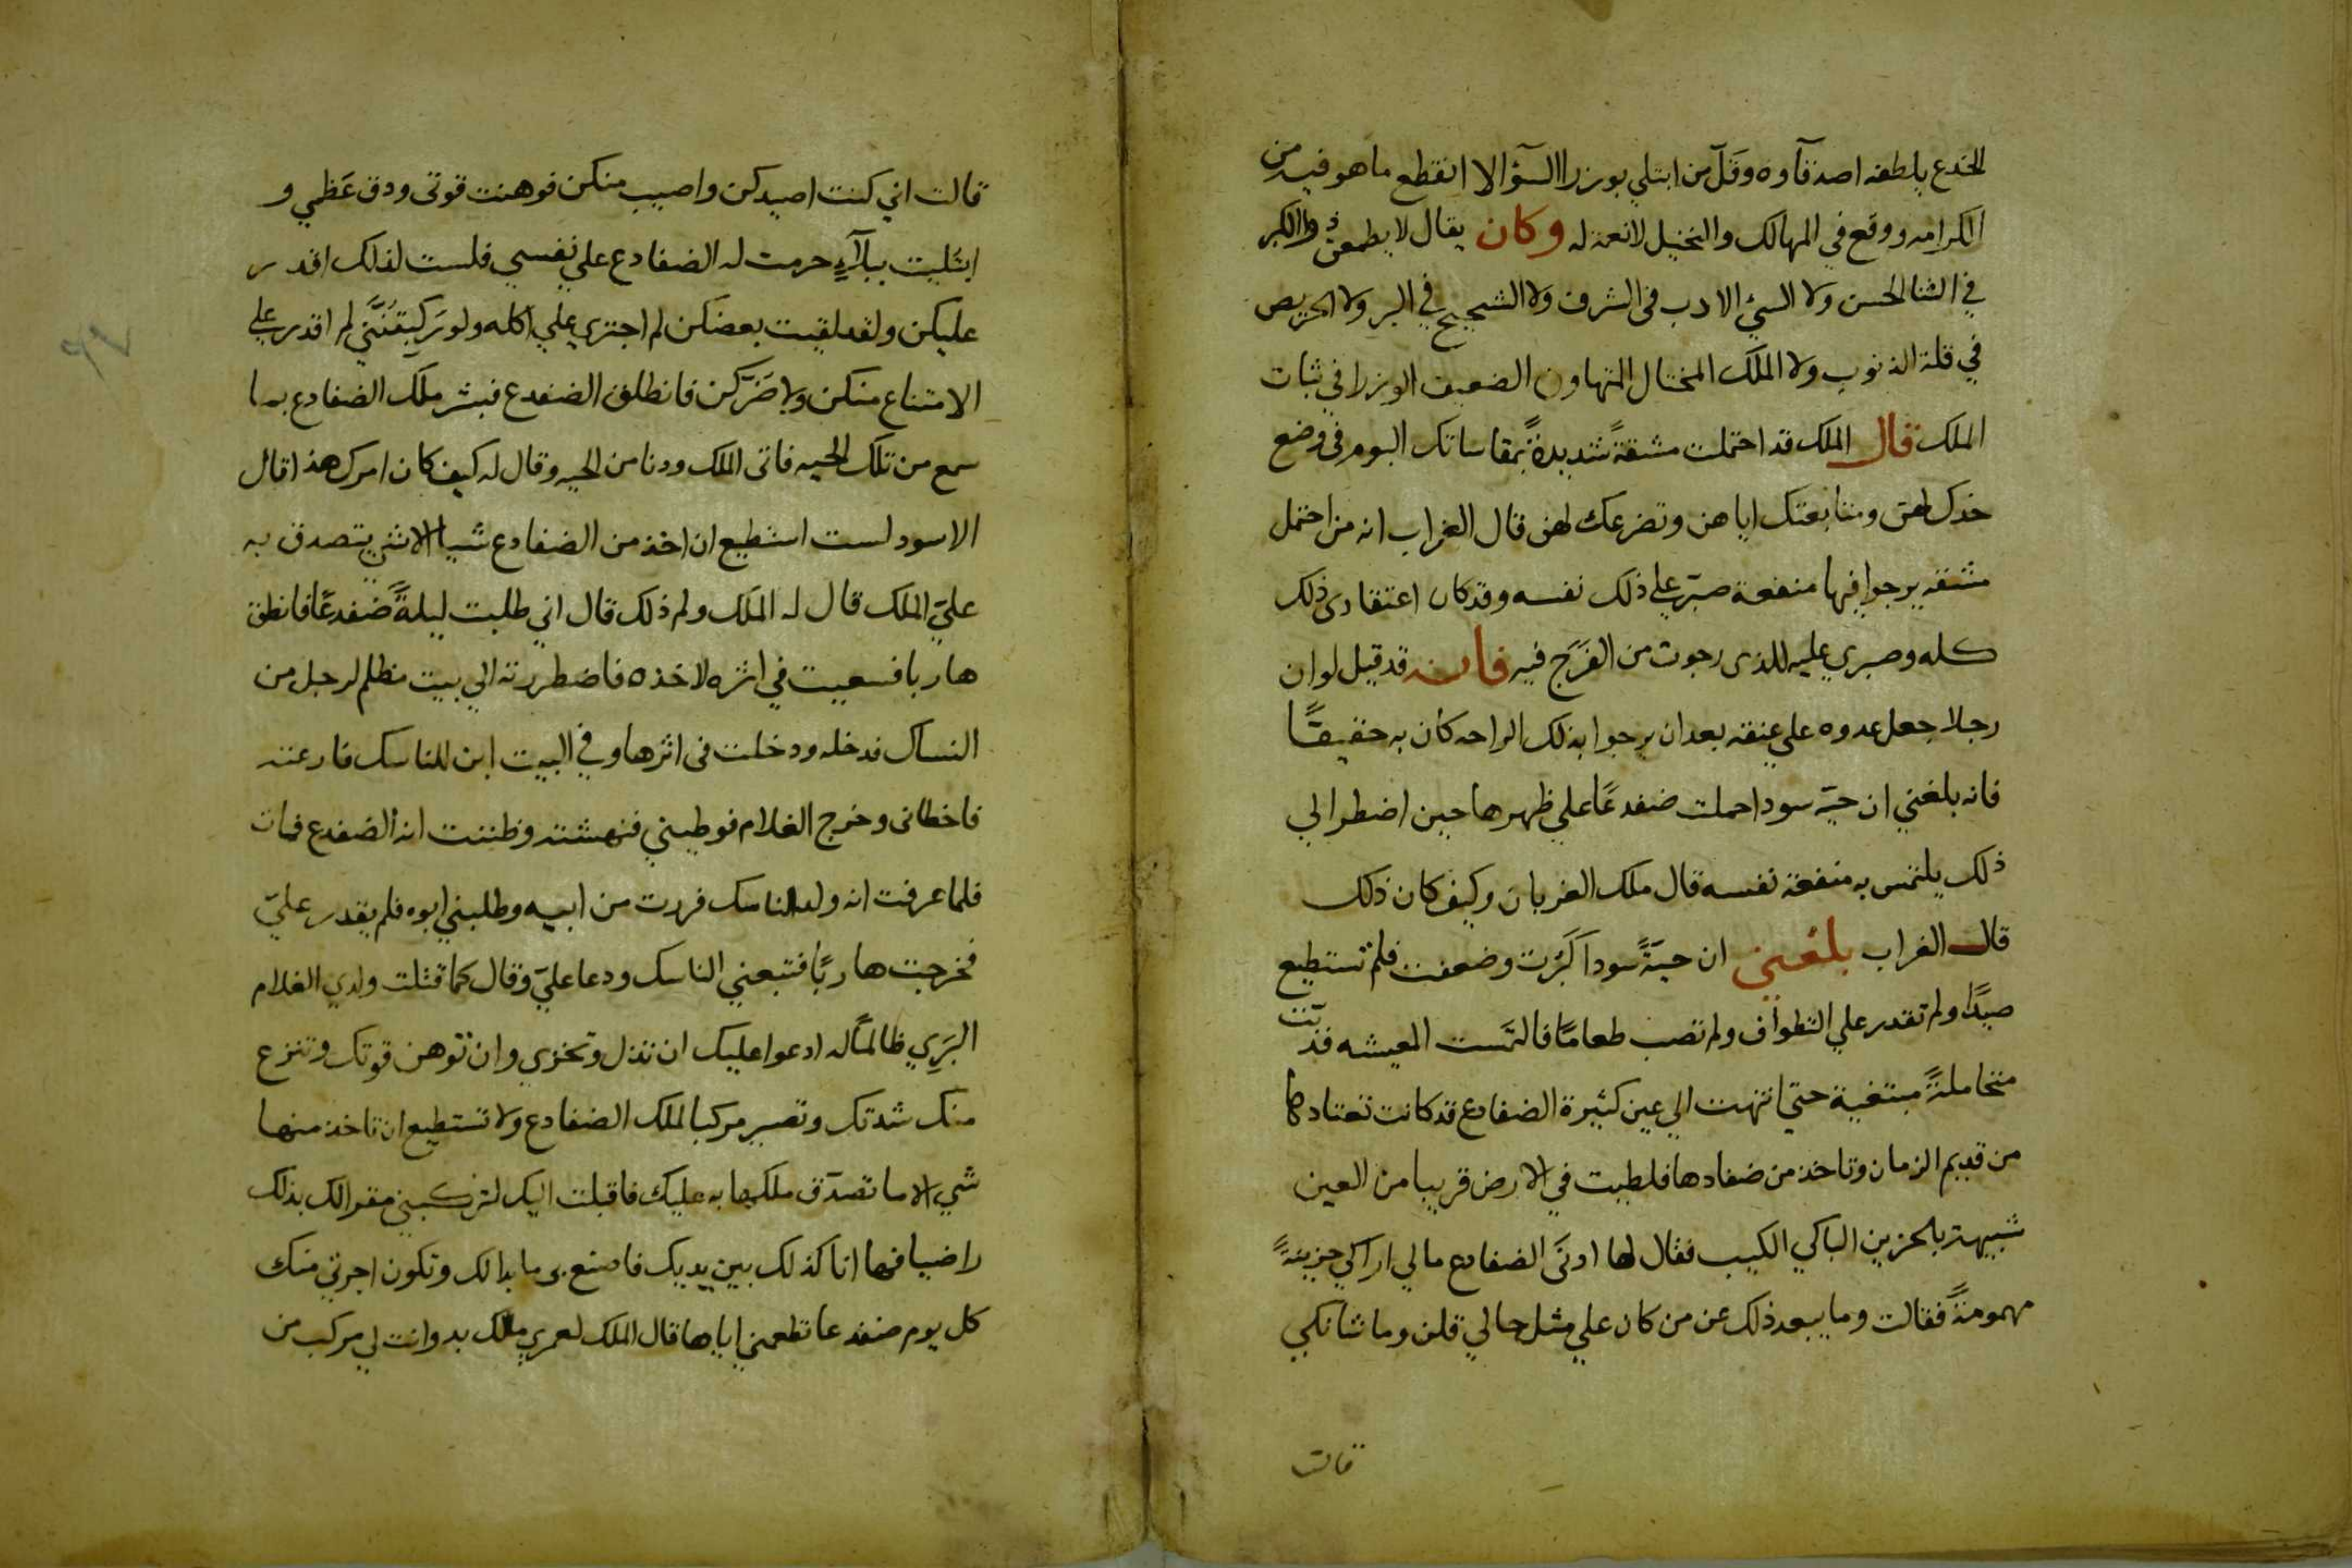 الخدع بلطفه اصدقآوه وقلّ من ابتلي بوزرا السؤ الا انقطع ما هو فيه من
الكرامه ووقع في المهالك والبخيل لا نعمة له وكان يقال لا يطمعن ذوا الكبر
في الثنا الحسن ولا السيء الادب في الشرف ولا الشحيح في البر ولا الحريص
في قلة الذنوب ولا الملك المختال المتهاون الضعيف الوزرا في ثبات
الملك قال الملك قد احتملت مشقةً شديدةً بمقاساتك البوم في وضع
خدك لهن ومتابعتك اياهن وتضرعك لهن قال الغراب انه من احتمل
مشقه يرجوا فيها منفعة صبّر علي ذلك نفسه وقد كان اعتقادي ذلك
كله وصبري عليه للذي رجوت من الفَرَج فيه فانه قد قيل لو ان
رجلا جعل عدوه علي عنقه بعد ان يرجوا بذلك الراحه كان به حقيقًا
فانه بلغني ان حيّه سودا حملت ضفدعًا علي ظهرها حين اضطر الي
ذلك يلتمس به منفعة نفسه قال ملك الغربان وكيف كان ذلك
قال الغراب بلغني ان حيّةً سودآ كبُرت وضعفت فلم تستطيع
صيدًا ولم تقدر علي التطواف ولم تصب طعامًا فالتمست المعيشه فدبّت
متحاملةً مبتغية حتي انتهت الي عين كثيرة الضفادع قد كانت تعتادها
من قديم الزمان وتاخذ من ضفادعها فلطيت في الارض قريبا من العين
شبيهة بالحزين الباكي الكيب فقال لها ادنَى الضفادع ما لي اراكي حزينةً
مهمومةً فقالت وما يبعد ذلك عن من كان علي مثل حالي قلن وما شانكي
قالت
قالت اني كنت اصيدكن واصيب منكن فوهنت قوتي ودق عَظمي و
ابتليت ببلآءٍ حرمت له الضفادع علي نفسي فلست لذلك اقدر
عليكن ولقد لقيت بعضكن لم اجتري علي اكله ولو ركبتُنَّني لم اقدر علي
الامتناع منكن ولا ضَرّكن فانطلق الضفدع فبشر ملك الضفادع بما
سمع من تلك الحيه فاتى الملك ودنا من الحيه وقال له كيف كان امرك هذا قال
الاسود لست استطيع ان اخذ من الضفادع شيا الا شي يتصدق به
عليّ الملك قال له الملك ولم ذلك قال اني طلبت ليلةً ضفدعًا فانطلق
هاربا فسعيت في اثره لاخذه فاضطررته الي بيت مظلم لرجل من
النساك فدخله ودخلت في اثرها وفي البيت ابن للناسك
فاخطاني وخرج الغلام فوطيني فنهشته وظننت انه الضفدع فمات
فلما عرفت انه ولد الناسك فررت من ابيه وطلبني ابوه فلم يقدر عليّ
فخرجت هاربًا فتبعني الناسك ودعا عليّ وقال كما قتلت ولدي الغلام
البَرِي ظالمًا له ادعوا عليك ان تذل وتخزي وان توهن قوتك وتنزع
منك شدتك وتصير مركبا لملك الضفادع ولا تستطيع ان تاخذ منها
شي الا ما تصدّق ملكها به عليك فاقبلت اليك لتركبني مقرا لك بذلك
راضيا فها انا كذلك بين يديك فاصنع بي ما بدالك وتكون اجرتي منك
كل يوم ضفدعا تطعمني اياها قال الملك لعمري مالك بد وانت لي مركب من